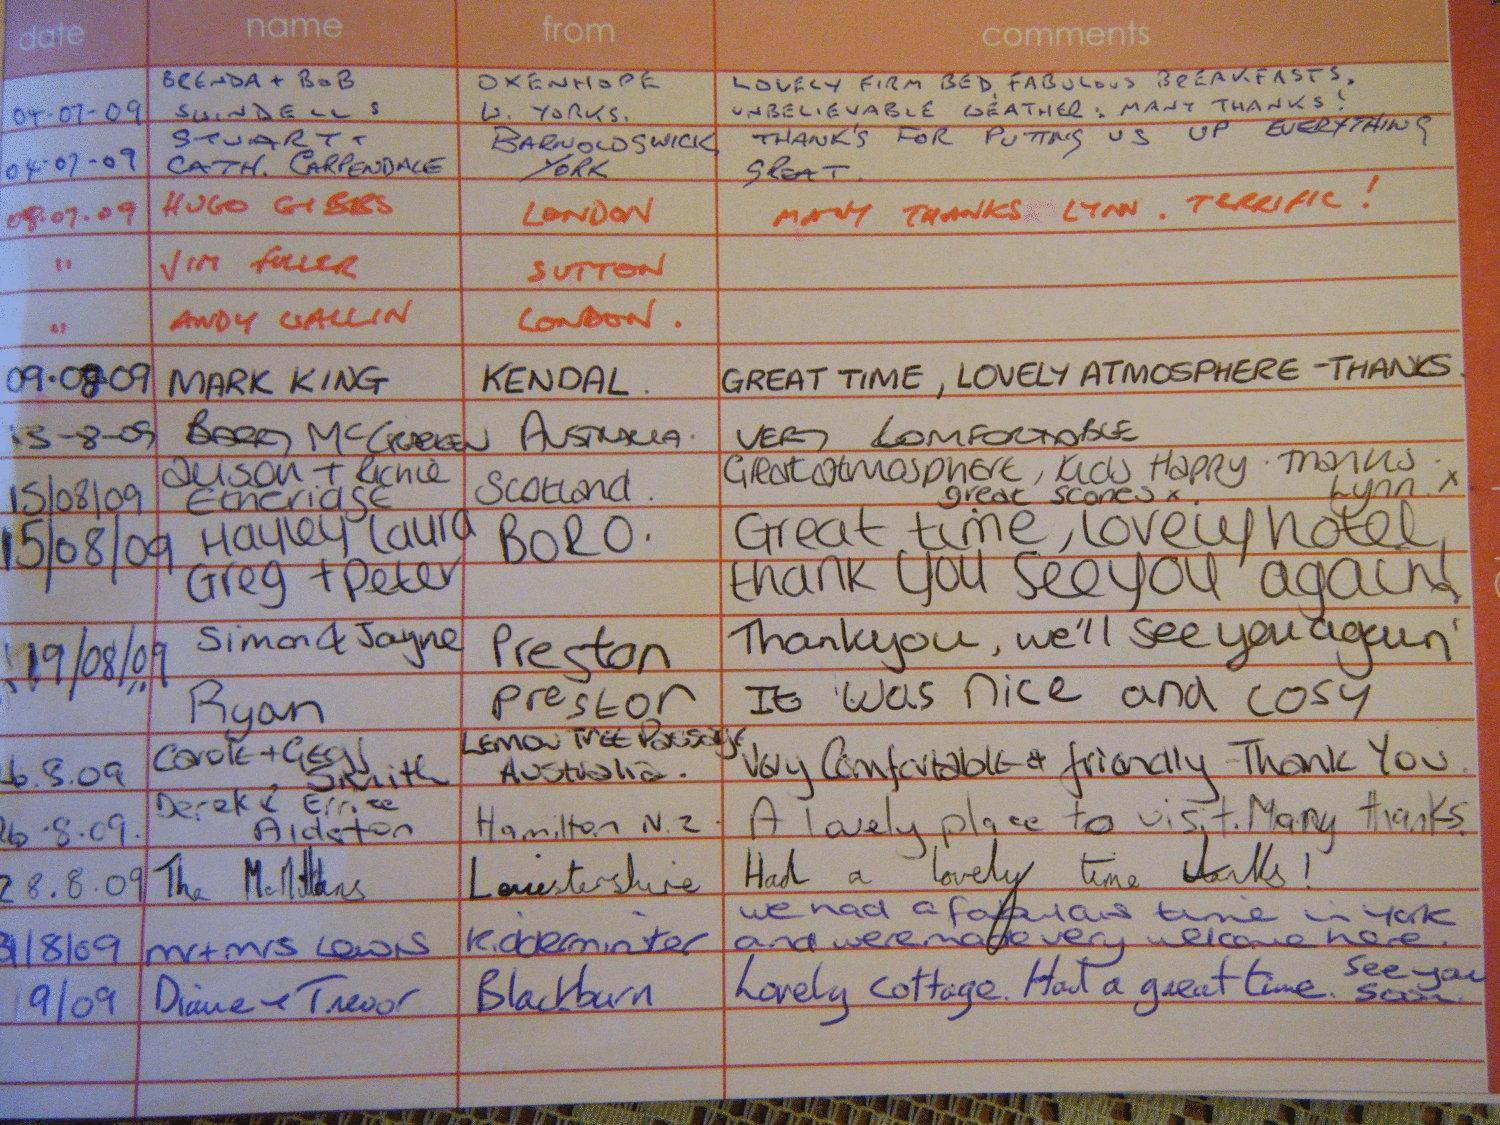 date name from comments
BRENDA + BOB OXENHOPE LOVELY FIRM BED, FABULOUS BREAKFASTS,
04-07-09 SWINDELLS W. YORKS. UNBELIEVABLE WEATHER. MANY THANKS!
STUART + BARNOLDSWICK, THANK'S FOR PUTTING US UP EVERYTHING
04-07-09 CATH. CARPENDALE YORK GREAT.
08.07.09 HUGO GIBBS LONDON MANY THANKS LYNN. TERRIFIC!
" JIM FULLER SUTTON
" ANDY WALLIN LONDON.
09.08.09 MARK KING KENDAL. GREAT TIME, LOVELY ATMOSPHERE - THANKS.
13-8-09 BARRY McCRACKEN AUSTRALIA. VERY COMFORTABLE
Alison + Richie Great atmosphere, kids Happy. Thanks
15/08/09 Etheridge Scotland. great scones x. Lynn. x
15/08/09 Hayley Laura BORO. Great time, lovely hotel,
Greg + Peter thank you see you again!
19/08/09 Simon & Jayne Preston Thankyou, we'll see you again
Ryan Preston It was nice and cosy
Carole + LEMON TREE Passage
6.8.09 Smith Australia. Very Comfortable & friendly - Thank You.
Derek &
26.8.09. Hamilton N.Z. A lovely place to visit. Many thanks.
28.8.09 The McMillans Leicestershire Had a lovely time thanks!
we had a fabulous time in York
31/8/09 mr+mrs Lewis Kidderminster and were made very welcome here.
9/09 Diane & Trevor Blackburn Lovely cottage. Had a great time. See you
soon.